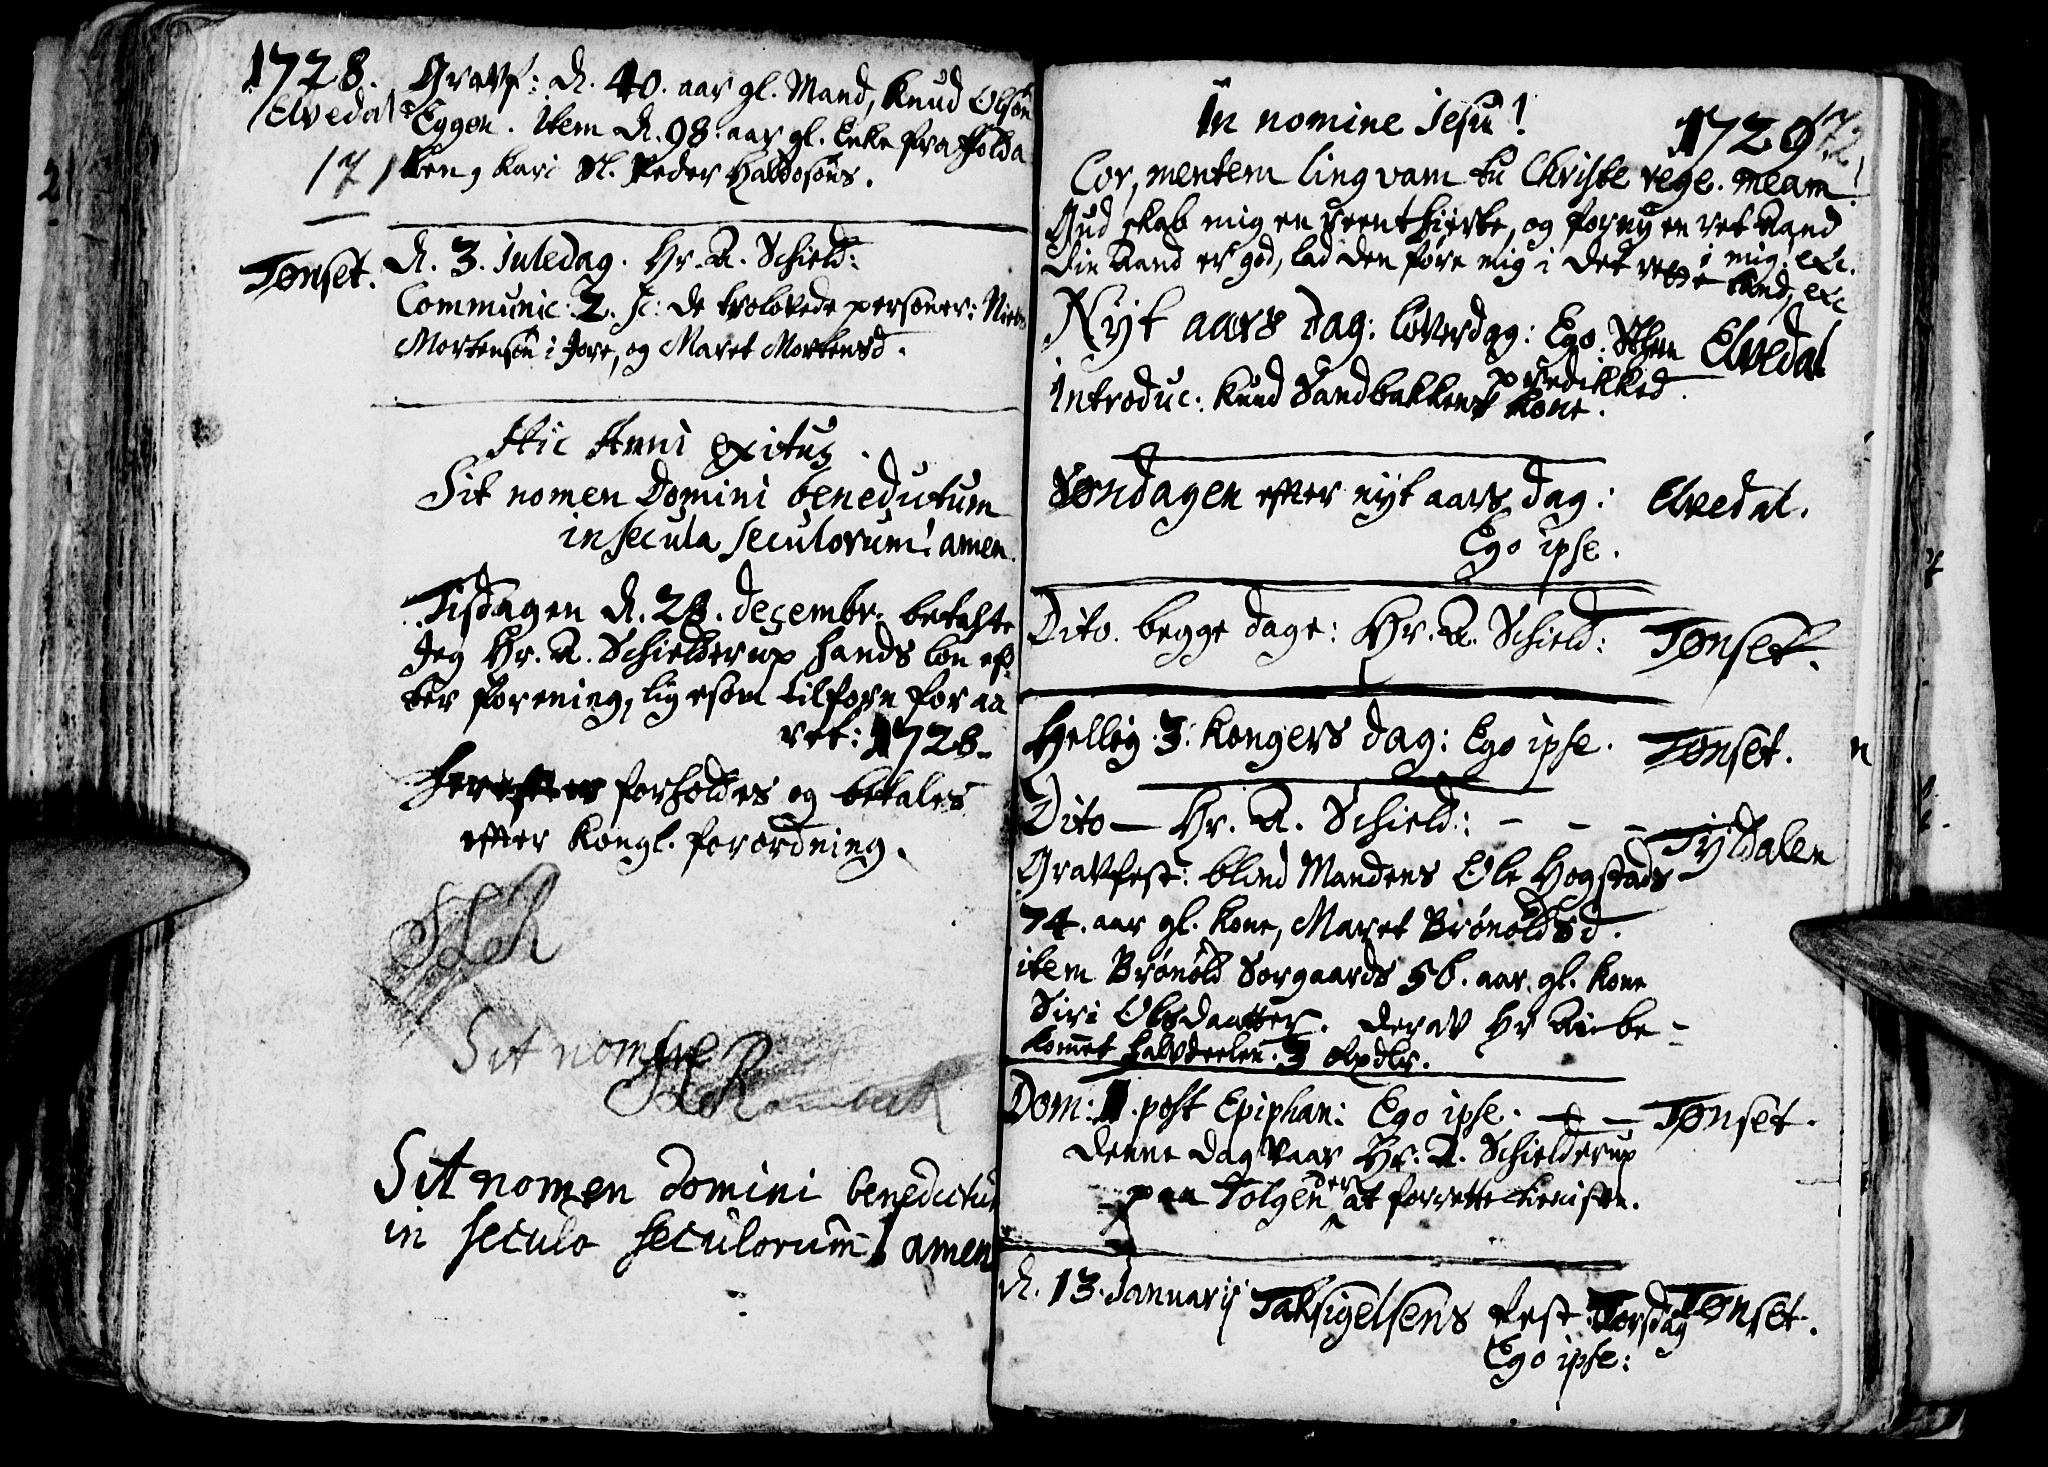 1728.
Elvedal
171
Gravf: d. 40. aar gl. Mand, Knud Olsøn
Eggen. Item d. 98. aar gl. Enke fra Holda
ken, Kari Sl. Peder Haldosøns.
Tønset.
d. 3. Juledag. Hr. A. Schield:
Communic: 2. sc: de trolovede personer: Niels
Mortensøn i Jore, og Maret Mortensd.
Hic Anni exitus.
Sit nomen Domini benedictum
in secula seculorum! amen.
Tisdagen d. 28. decembr. betalte
Jeg Hr. A. Schielderup hands løn ef-
ter forening, ligesom tilforn for aa
ret: 1728.
forholdes og betales
efter Kongl. forordning.
Sit nom
Sit nomen domini benedictum
in seculo seculorum! amen
In nomine Jesu!
1729
172
Cor, mentem lingvam tu Christe rege. meam!
Gud skab mig en reent hierte, og forny en ret Aand
i mig. etc.
din Aand er god, lad den føre mig i det rette land, etc
Nyt aars dag: løverdag: Ego. Elvedal
prædikked.
Introduc: Knud Sandbakkens Kone.
Søndagen efter nyt aars dag: Elvedal.
Ego ipse.
Dito. begge dage: Hr. A. Schield: Tønset.
Hellig. 3. Kongers dag: Ego ipse. Tønset.
Dito — Hr. A. Schield: - - - Tyldalen
Gravfest: blind Mandens Ole Hogstads
74. aar gl. Kone, Maret Brønoldsd.
item Brønold Sorgaards 56. aar gl. Kone
Siri Olsdaatter. derav Hr be-
kommet halvdeelen. 3 Rxdlr.
Dom: 1. post Epiphan: Ego ipse. - - Tønset.
denne dag vaar Hr. A. Schielderup
paa Tolgen der at forrette tienisten.
d. 13. Januarij Taksigelsens fest: Torsdag Tønset.
Ego ipse: